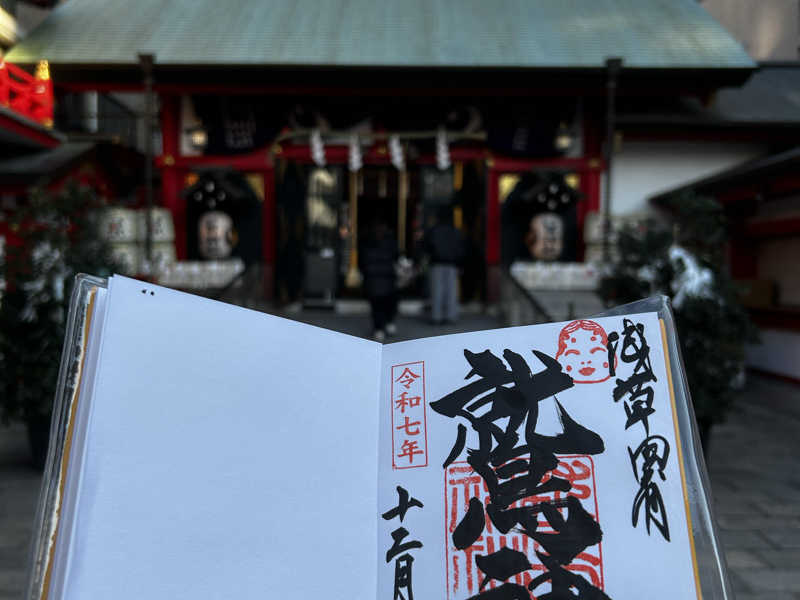 浅草田甫
鷲神
令和七年
十二月